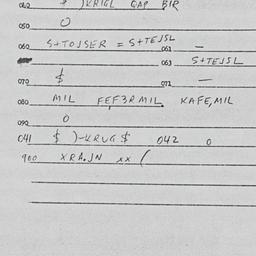 040 $ )KRIGL GAP BIR
050 0
060 S+TOJSER = S+TEJSL
061 —
063 S+TEJSL
070 $ 071 —
080 MIL FEF3RMIL KAFE,MIL
090 0
041 $ )-KRUG $ 042 0
900 XRA.JN xx (